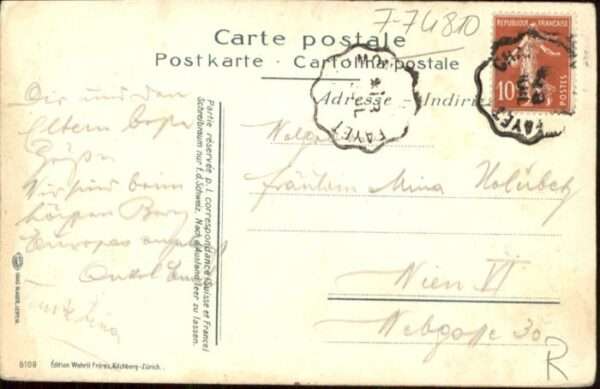 7-74810
Carte postale
Postkarte · Cartolina postale
Adresse - Indiri
REPUBLIQUE FRANÇAISE
10
POSTES
FAYET
FAYET
Dir und den
Eltern beste
Grüße
Wir sind beim
Berg
Europas
Onkel
Partie réservée p. l. correspondance (Suisse et France)
Schreibraum nur f. d. Schweiz. Nach d. Ausland leer zu lassen.
Wohlgeboren
Fräulein Mina Holubetz
Wien VI
Webgasse 30
R
6109
Edition Wehrli Frères, Kilchberg-Zürich.